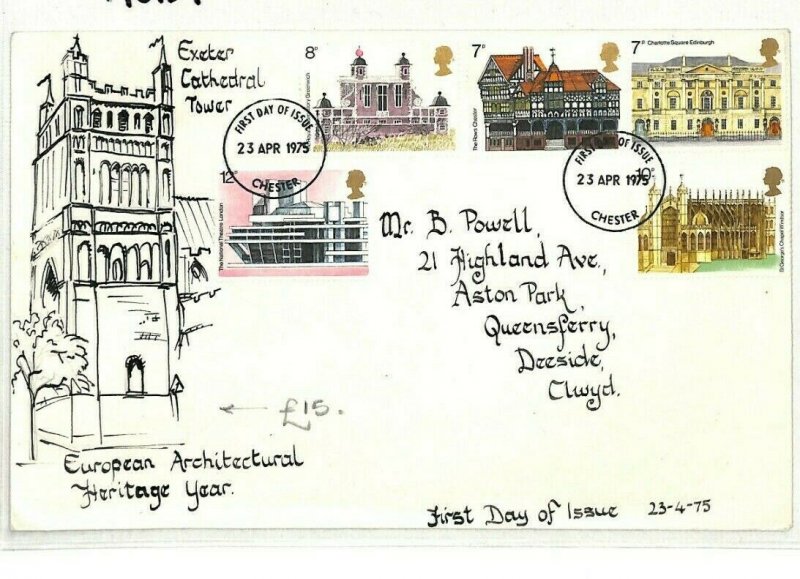 Exeter
Cathedral
Tower
8P
7P
7P Charlotte Square Edinburgh
The Rows Chester
FIRST DAY OF ISSUE
23 APR 1975
CHESTER
FIRST DAY OF ISSUE
23 APR 1975
CHESTER
12P
The National Theatre London
10P
St George's Chapel Windsor
Mr. B. Powell,
21 Highland Ave.,
Aston Park,
Queensferry,
Deeside,
Clwyd.
← £15.
European Architectural
Heritage Year.
First Day of Issue 23-4-75